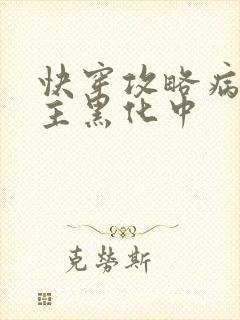 快穿攻略病
主黑化中
克劳斯